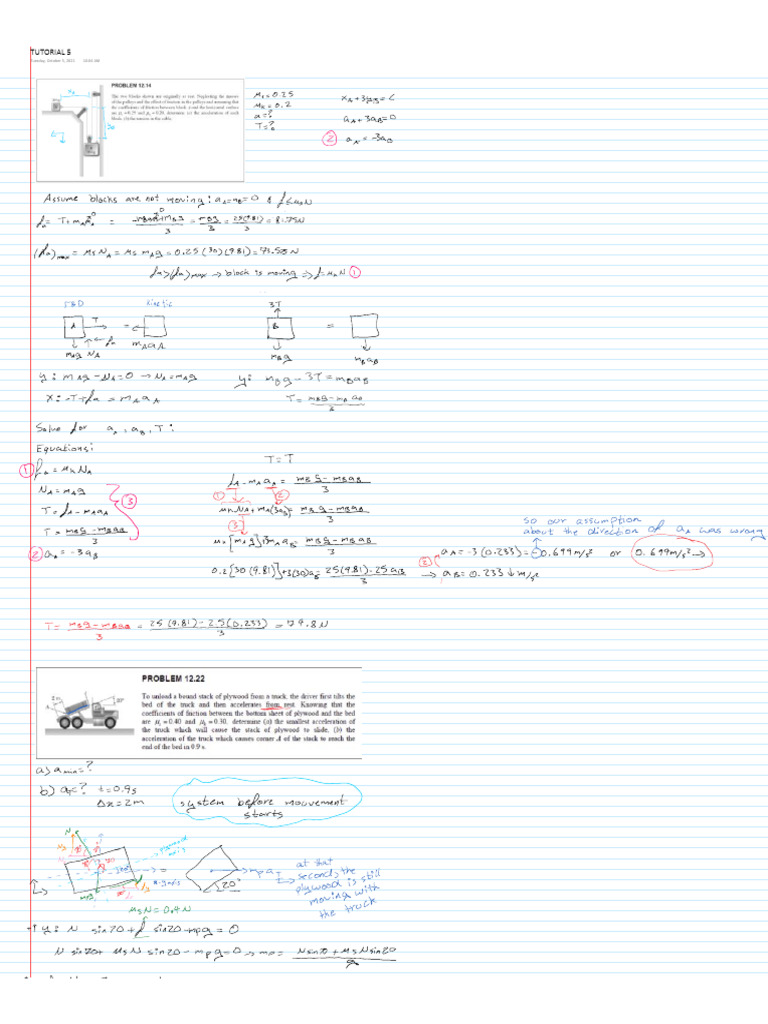 TUTORIAL 5
PROBLEM 12.14
The two blocks shown are originally at rest. Neglecting the masses
of the pulleys and the effect of friction in the pulleys and assuming that
the coefficients of friction between block A and the horizontal surface
are μs = 0.25 and μk = 0.20, determine (a) the acceleration of each
block, (b) the tension in the cable.
μs = 0.25
μk = 0.2
a = ?
T = ?
xA + 3yB = C
aA + 3aB = 0
② aA = -3aB
Assume blocks are not moving: aA = aB = 0 &
= 25(9.81)/3 = 81.75N
(fA)max = μs NA = μs mA g = 0.25 (30) (9.81) = 73.58N
fA > (fA)max → block is moving ⇒ f = μk N ①
FBD Kinetic 3T
A T = mA aA B =
mAg NA fA mBg mB aB
y: mAg - NA = 0 → NA = mAg
y: mBg - 3T = mBaB
x: -T + fA = mA aA
T = mBg - mB aB / 3
Solve for aA, aB, T:
Equations:
① fA = μk NA
NA = mAg
T = fA - mAaA
T = mBg - mBaB / 3
③
② aA = -3aB
T = T
fA - mA aA = mBg - mBaB / 3
① ②
μk NA + mA(3aB) = mBg - mBaB / 3
③
μk[mAg] + 3mA aB = mBg - mBaB / 3
0.2[30 (9.81)] + 3(30)aB = 25(9.81) - 25 aB / 3 → aB = 0.233 ↓ m/s²
② aA = -3 (0.233) = -0.699 m/s² or 0.699 m/s² →
so our assumption
about the direction of aA was wrong
T = mBg - mBaB / 3 = 25 (9.81) - 25(0.233) / 3 = 79.8N
PROBLEM 12.22
To unload a bound stack of plywood from a truck, the driver first tilts the
bed of the truck and then accelerates from rest. Knowing that the
coefficients of friction between the bottom sheet of plywood and the bed
are μs = 0.40 and μk = 0.30, determine (a) the smallest acceleration of
the truck which will cause the stack of plywood to slide, (b) the
acceleration of the truck which causes corner A of the stack to reach the
end of the bed in 0.9 s.
a) amin = ?
b) aT = ? t = 0.9s
Δx = 2m
system before mouvement
starts
= mp a
20°
at that
second, the
plywood is still
moving with
the truck
μs N = 0.4N
+↑ y: N sin70 + f sin20 - mpg = 0
N sin70 + μs N sin20 - mp g = 0 → mp = N sin70 + μs N sin20 / g